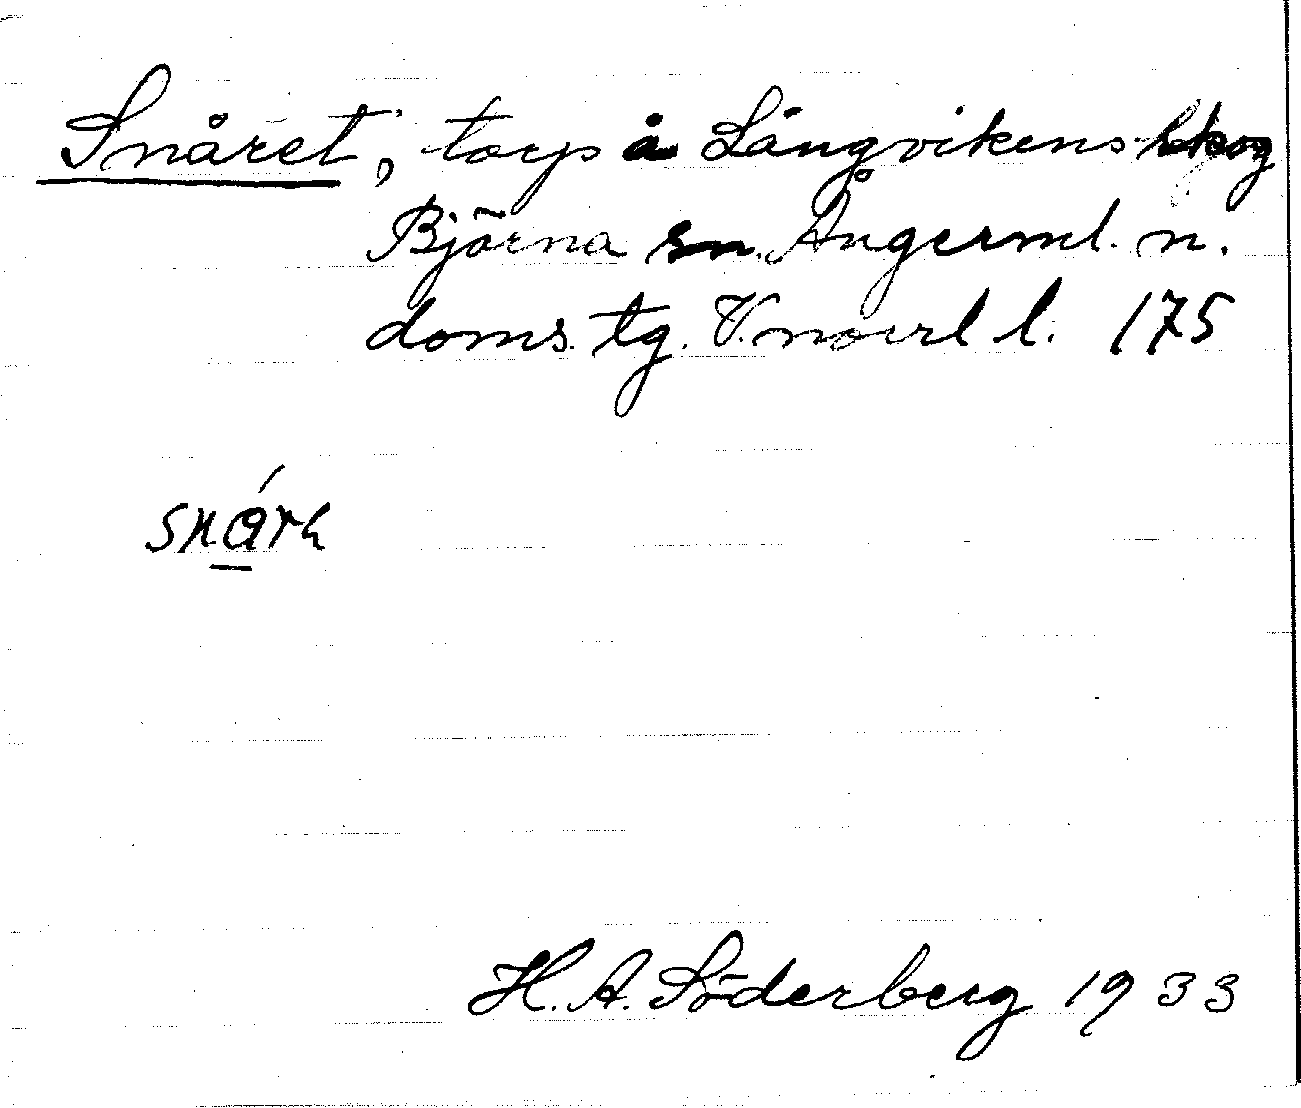 Snåret, torp å Långvikens skog
Björna sn. Ångerml. n.
doms. tg. V.norrl l. 175
H. A. Söderberg 1933